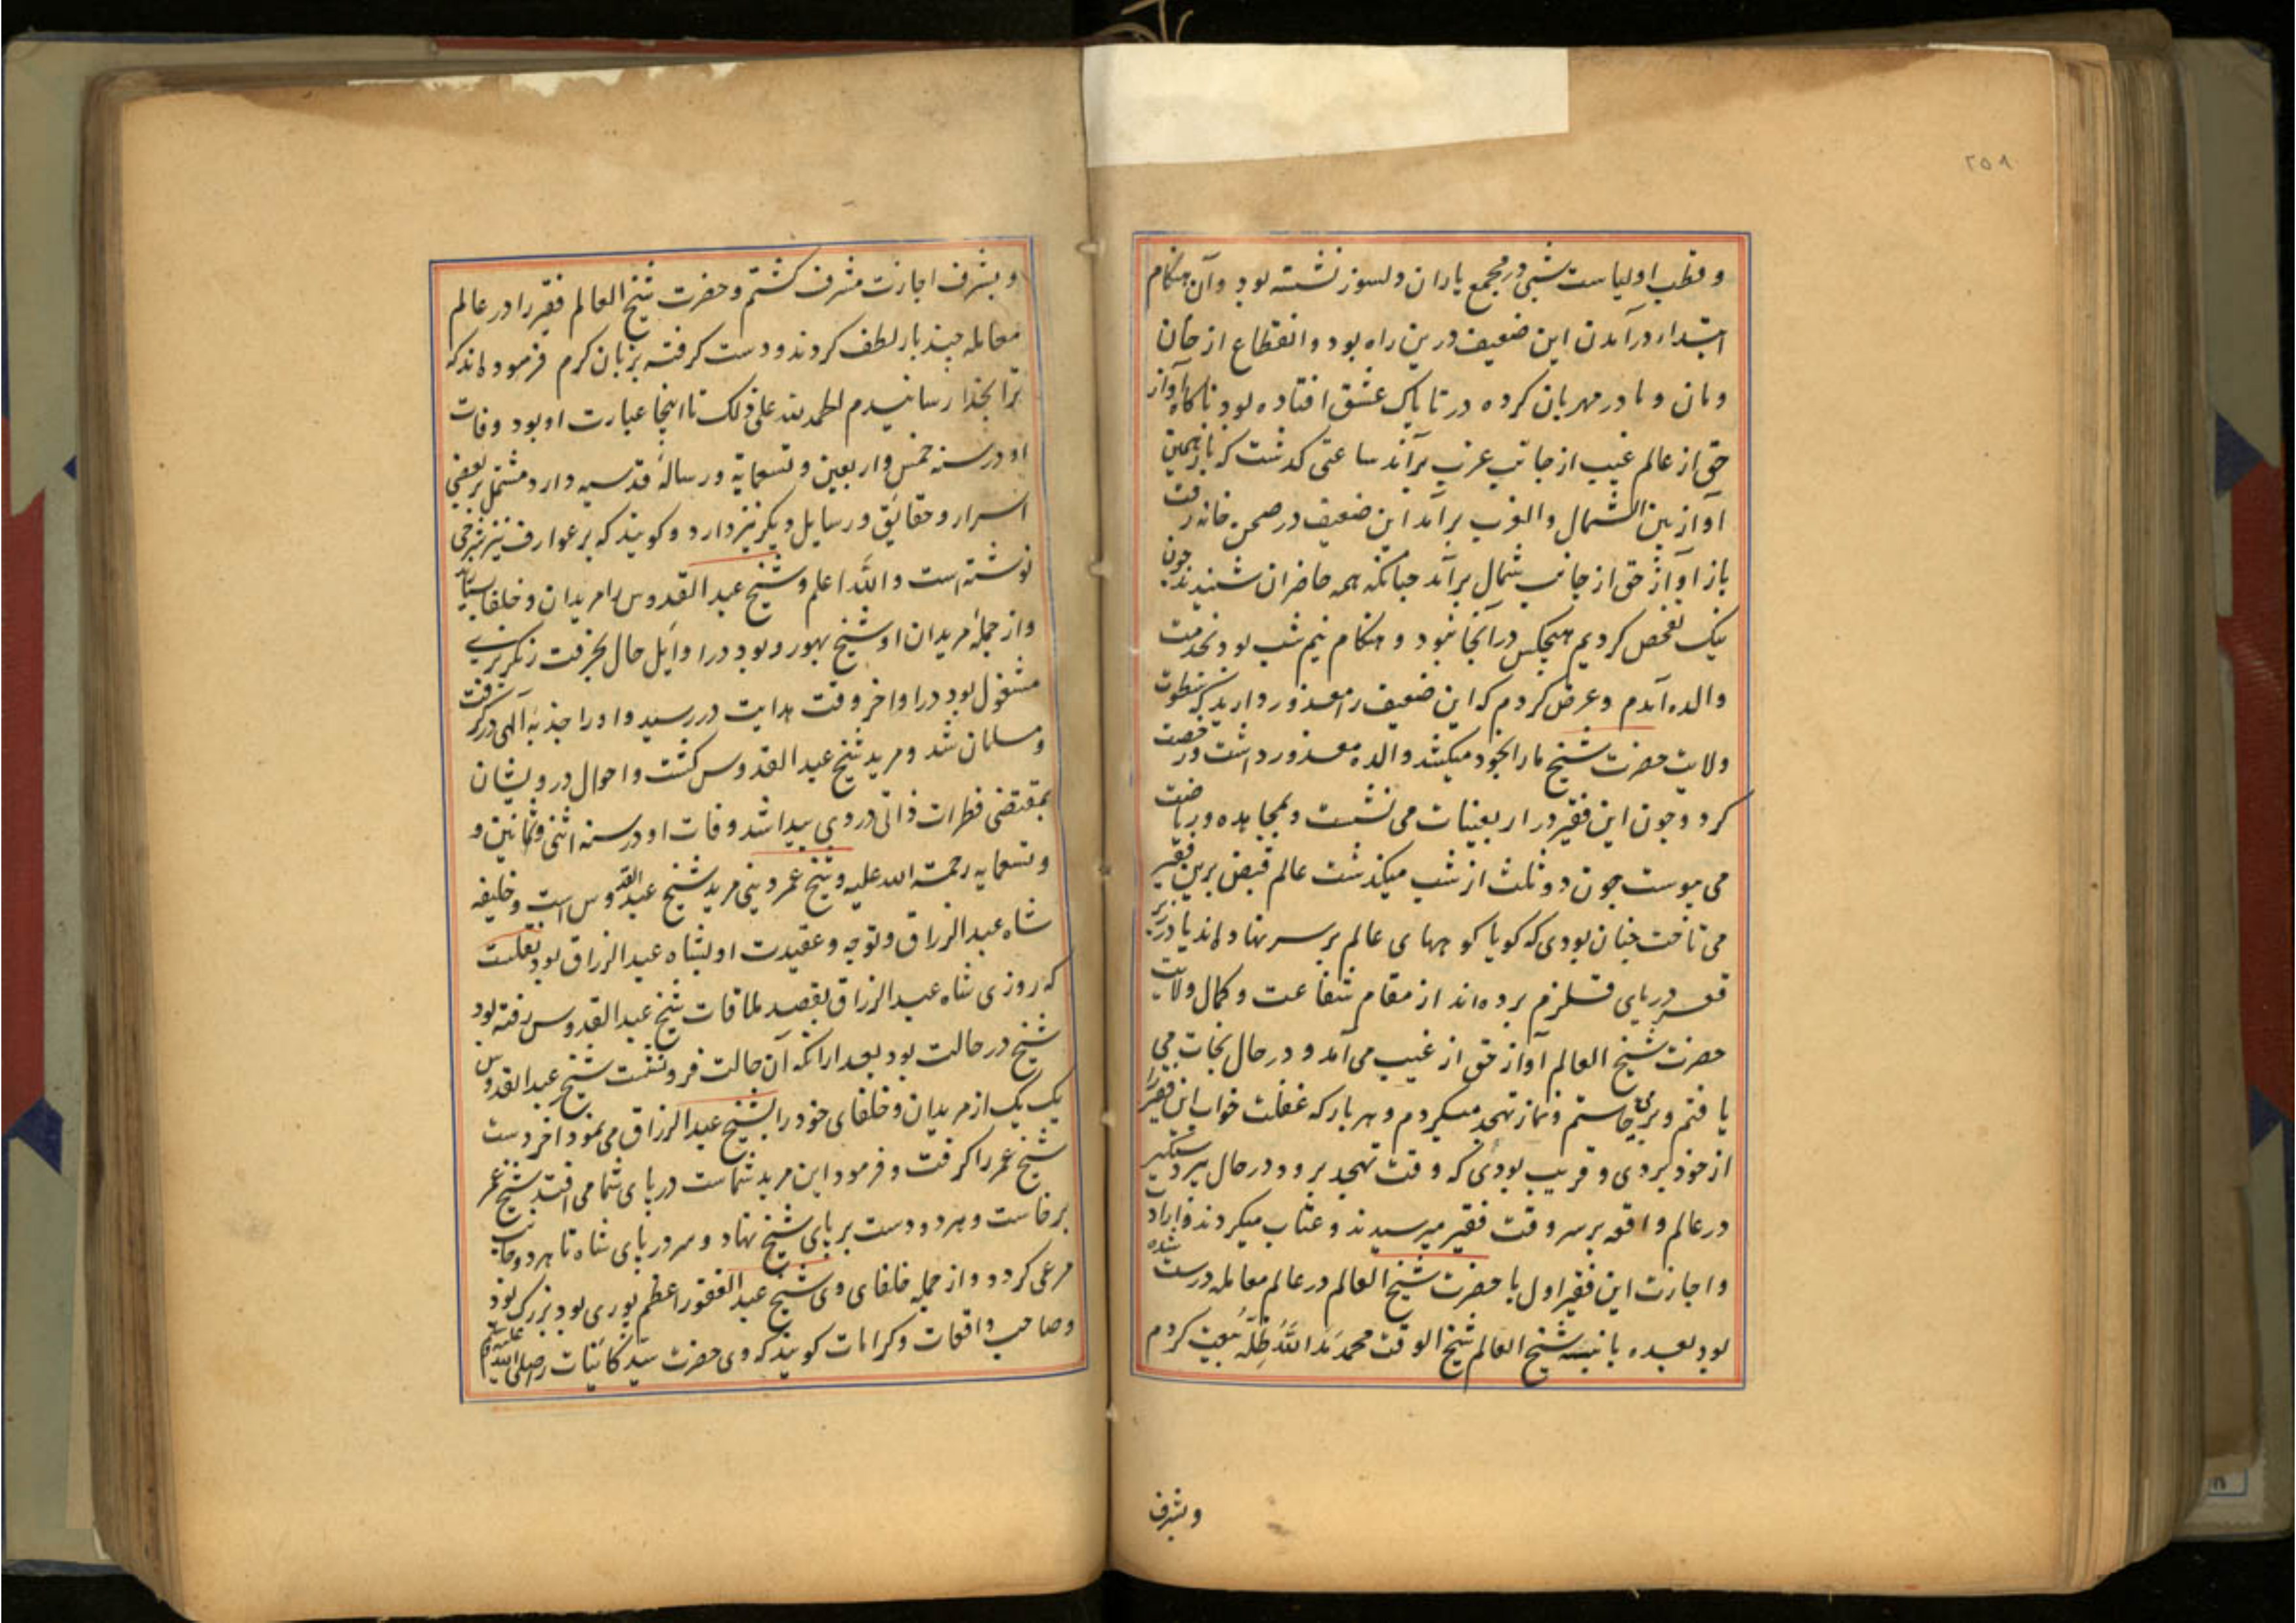 ۲۵۸
و قطب اولیاست شبی در مجمع یاران دلسوز نشسته بود و آن هنکام
ابتداء درآمدن این ضعیف درین راه بود و انقطاع از خان
و مان و مادر مهربان کرده در تاپاک عشق افتاده بود ناکاه آواز
حق از عالم غیب از جانب غرب برآند ساعتی کدشت که باز همین
آواز بین الشمال والغرب برآمد این ضعیف در صحن خانه رفت
باز آواز حق از جانب شمال برآمد چنانکه همه حاضران شنیدند چون
نیک تفحص کردیم هیچکس در آنجا نبود و هنکام نیم شب بود بخدمت
والده آمدم و عرض کردم که این ضعیف را معذور دارید که سطوت
ولایت حضرت شیخ مارا بخود میکشد والده معذور داشت و رخصت
کرد و چون این فقیر در اربعینات می نشست و بمجاهده و ریاضت
می پیوست چون دو ثلث از شب میکذشت عالم قبض برین فقیر
می تاخت چنان بودی که کویا کوههای عالم بر سر نهاده اند یا در زیر
قعر دریای قلزم برده اند از مقام شفاعت و کمال ولایت
حضرت شیخ العالم آواز حق از غیب می آمد و در حال نجات می
یافتم و برمی خاستم و نماز تهجد میکردم و هر بار که غفلت خواب این فقیر را
از خود بردی و قریب بودی که وقت تهجد برود در حال پیر دستکیر
در عالم واقعه بر سر وقت فقیر میرسیدند و عتاب میکردند و ارادت
و اجازت این فقیر اول با حضرت شیخ العالم در عالم معامله درست شده
بود بعده با نبیسه شیخ العالم شیخ الوقت محمد مَدَ اللَّهُ ظِلَّهُ بیعت کردم
و بشرف
و بشرف اجازت مشرف کشتم و حضرت شیخ العالم فقیر را در عالم
معامله چند بار لطف کردند و دست کرفته بزبان کرم فرموده اند که
ترا بخدا رسانیدم الحمد لله علی ذلک تا اینجا عبارت او بود وفات
او در سنه خمس و اربعین و تسعمایة و رسالهٔ قدسیه دارد مشتمل بر بعضی
اسرار و حقایق و رسایل دیکر نیز دارد و کویند که بر عوارف نیز شرحی
نوشته است والله اعلم و شیخ عبد القدوس را مریدان و خلفا بسیاراند
و از جملهٔ مریدان او شیخ بهورو بود در اوایل حال بحرفت رنکریزی
مشغول بود در اواخر وقت هدایت در رسید و او را جذبهٔ آلهی در کرفت
و مسلمان شد و مرید شیخ عبد القدوس کشت و احوال درویشان
بمقتضی فطرات ذاتی در وی پیدا شد وفات او در سنه اثنی و ثمانین و
و تسعمایه رحمة الله علیه و شیخ عمر دینی مرید شیخ عبد القدوس است و خلیفه
شاه عبد الرزاق و توجه و عقیدت او بشاه عبد الرزاق بود نقلست
که روزی شاه عبد الرزاق بقصد ملاقات شیخ عبد القدوس رفته بود
شیخ در حالت بود بعد ازانکه آن حالت فرو نشست شیخ عبد القدوس
یک یک از مریدان و خلفای خود را بشیخ عبد الرزاق می نمود اخر دست
شیخ عمر را کرفت و فرمود این مرید شماست در پای شما می افتد شیخ عمر
برخاست و هر دو دست بر پای شیخ نهاد و سر در پای شاه تا هر دو جانب
مرعی کردد و از جمله خلفای وی شیخ عبد الغفور اعظم پوری بود بزرک بود
و صاحب واقعات و کرامات کویند که وی حضرت سید کائنات را صلی الله علیه